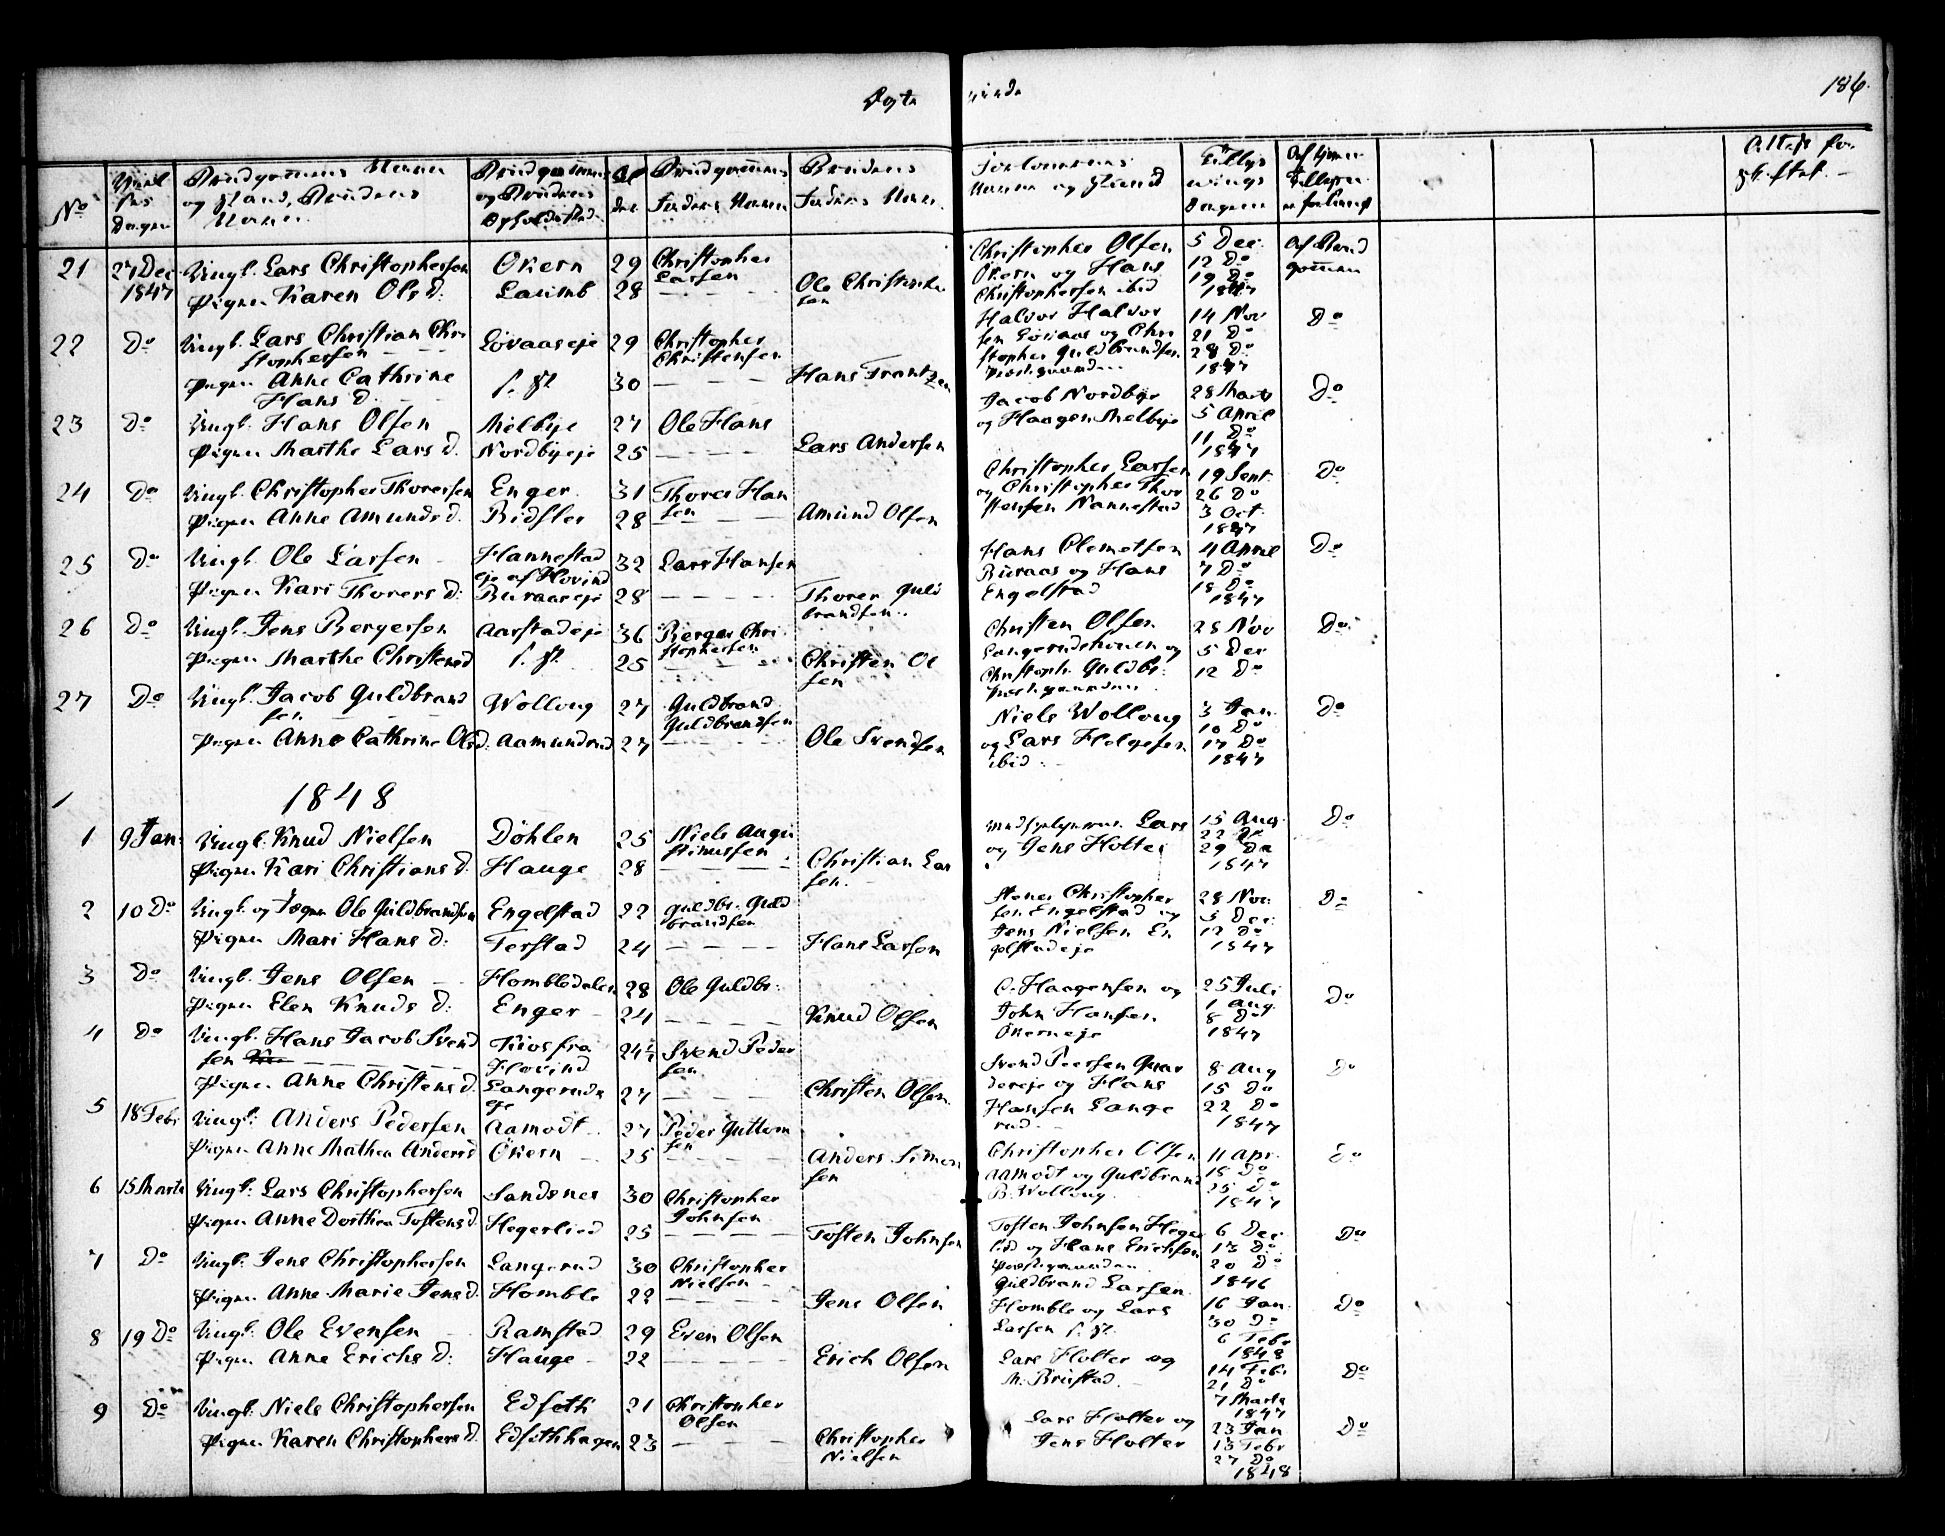 186.
No
Dagen
Brudgommens Navn og Stand, Brudens Navn
Brudgommens og Brudens Opholdssted
Brudgommens Faders Navn
Brudens Faders Navn
Forlovernes Navne og Stand
21 27 Dec 1847 Ungk. Lars Christophersen Økern 29 Christopher Larsen
Pigen Karen Ols d. Lauimb 28 Ole Christophersen
Christopher Olsen Økern og Hans Christophersen ibid 5 Dec. 12 Do 19 Do 1847 Af Brudgommen
22 Do Ungk. Lars Christian Christophersen Lövaaseje 29 Christopher Christensen
Pigen Anne Cathrine Hans d. f. St. 30 Hans Frantzen
Halvor Halvorsen Lövaas og Christopher Guldbrandsen 14 Nov 21 Do 28 Do 1847 Do
23 Do Ungk. Hans Olsen Melbye 27 Ole Hans
Pigen Marthe Lars d. Nordbyeje 25 Lars Andersen
Jacob Nordbye og Haagen Melbye 28 Marts 5 April 11 Do 1847 Do
24 Do Ungk. Christopher Thoresen Enger 31 Thores Hansen
Pigen Anne Amunds d. Bidsler 28 Amund Olsen
Christopher Larsen og Christopher Thorstensen Nannestad 19 Sept. 26 Do 3 Oct. 1847 Do
25 Do Ungk. Ole Larsen Hannestad eje af Hovind 32 Lars Hansen
Pigen Kari Thorers d. Buraaseje 28 Thorer Guldbrandsen
Hans Clemetsen Buraas og Hans Engelstad 4 April 7 Do 18 Do 1847 Do
26 Do Ungk. Jens Bergersen Aarstadeje 36 Berger Christophersen
Pigen Marthe Christens d f. St. 25 Christen Olsen
Christen Olsen og Christoph. Guldbr. 28 Nov 5 Dec 12 Do Do
27 Do Ungk. Jacob Guldbrandsen Wolloug 27 Guldbrand Guldbrandsen
Pigen Anne Cathrine Ols d. Aamundrud 27 Ole Svendsen
Niels Wolloug og Lars Helgesen ibid 3 Jan. 10 Do 17 Do 1847 Do
1848
1 9 Jan. Ungk. Knud Nielsen Döhlen 25 Niels Augustinussen
Pigen Kari Christians d. Hauge 28 Christian Larsen
Lars og Jens Holter 15 Aug. 22 Do 29 Do 1847 Do
2 10 Do Ungk. og Ole Guldbrandsen Engelstad 22 Guldbr. Guldbrandsen
Pigen Mari Hans d. Terstad 24 Hans Larsen
Christophersen Engelstad og Jens Nielsen Engelstadeje 28 Nov. 5 Dec. 12 Do 1847 Do
3 Do Ungk. Jens Olsen Hombledalen 28 Ole Guldbr.
Pigen Elen Knuds d. Enger 24 Knud Olsen
C. Haagensen og John Hansen Økerneje 25 Juli 1 Aug. 8 Do 1847 Do
4 Do Ungk. Hans Jacob Svendsen Kiosfra Hovind 24½ Svend Pedersen
Pigen Anne Christens d. Langeruds eje 27 Christen Olsen
Svend Peersen og Hans Hansen Langerud 8 Aug 15 Do 22 Do 1847 Do
5 18 Febr Ungk. Anders Pedersen Aamodt 27 Peder Guttormsen
Pigen Anne Mathea Anders d Økern 25 Anders Simonsen
Christopher Olsen Aamodt og Guldbrand B. Wolloug 11 Apr. 18 Do 25 Do 1847 Do
6 15 Marts Ungk. Lars Christophersen Sandsnes 30 Christopher Johnsen
Pigen Anne Dorthea Tostens d. Hegerlied 25 Tosten Johnsen
Tosten Johnsen Hegerlid og Hans Erichsen 6 Dec. 13 Do 20 Do 1846 Do
7 Do Ungk. Jens Christophersen Langerud 30 Christopher Nielsen
Pigen Anne Marie Jens d. Homble 22 Jens Olsen
Guldbrand Larsen Homble og Lars Larsen f. St. 16 Jan. 30 Do 6 Febr 1848 Do
8 19 Do Ungk. Ole Evensen Ramstad 29 Even Olsen
Pigen Anne Erichs d. Hauge 22 Erich Olsen
Lars Holter og M. Brustad 14 Febr 21 Do 7 Marts 1847 Do
9 Do Ungk. Niels Christophersen Edseth 21 Christopher Olsen
Pigen Karen Christophers d. Edsethhagen 23 Christopher Nielsen
Lars Holter og Jens Holter 23 Jan 13 Febr 27 Do 1848 Do